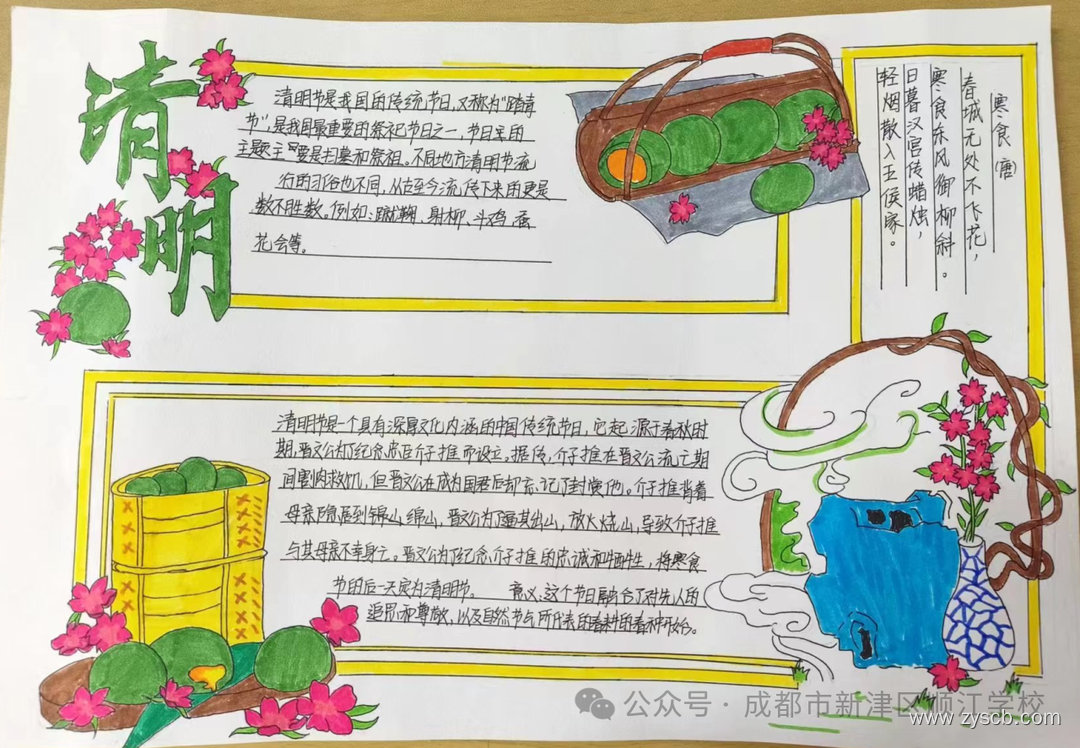 清明
清明节是我国的传统节日,又称为“踏青
节”,是我国最重要的祭祀节日之一,节日里的
主题主要是扫墓和祭祖。不同地方清明节流
行的习俗也不同,从古至今流传下来的更是
数不胜数,例如:蹴鞠、射柳、斗鸡、蚕
花会等。
寒食(唐)
春城无处不飞花,
寒食东风御柳斜。
日暮汉宫传蜡烛,
轻烟散入五侯家。
清明节是一个具有深厚文化内涵的中国传统节日,它起源于春秋时
期,晋文公为了纪念忠臣介子推而设立。据传,介子推在晋文公流亡期
间割肉救饥,但晋文公在成为国君后却忘记了封赏他。介子推背着
母亲隐居到锦山绵山,晋文公为了逼其出山,放火烧山,导致介子推
与其母亲不幸身亡。晋文公为了纪念介子推的忠诚和牺牲,将寒食
节的后一天定为清明节。 意义:这个节日融合了对先人的
追思和尊敬,以及自然节气所代表的春耕的春种开始。
公众号·成都市新津区顺江学校
www.zyscb.com